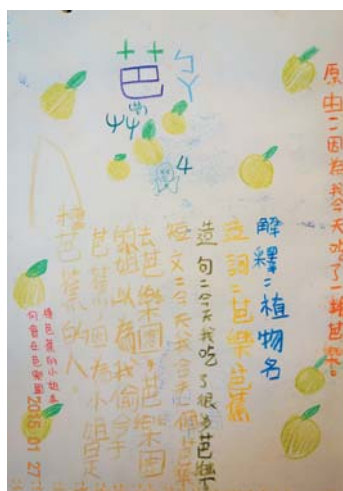 芭
ㄅㄚ
艸
4
原由：因為我今天吃了一堆芭樂。
解釋：植物名
造詞：芭樂芭蕉
造句：今天我吃了很多芭樂了
短文：今天我合走一個芭蕉
去芭樂園，芭樂園
以為我偷拿
芭蕉因為小姐是
種芭蕉的人。
種芭蕉的小姐
約會在芭樂園
2015 01 27